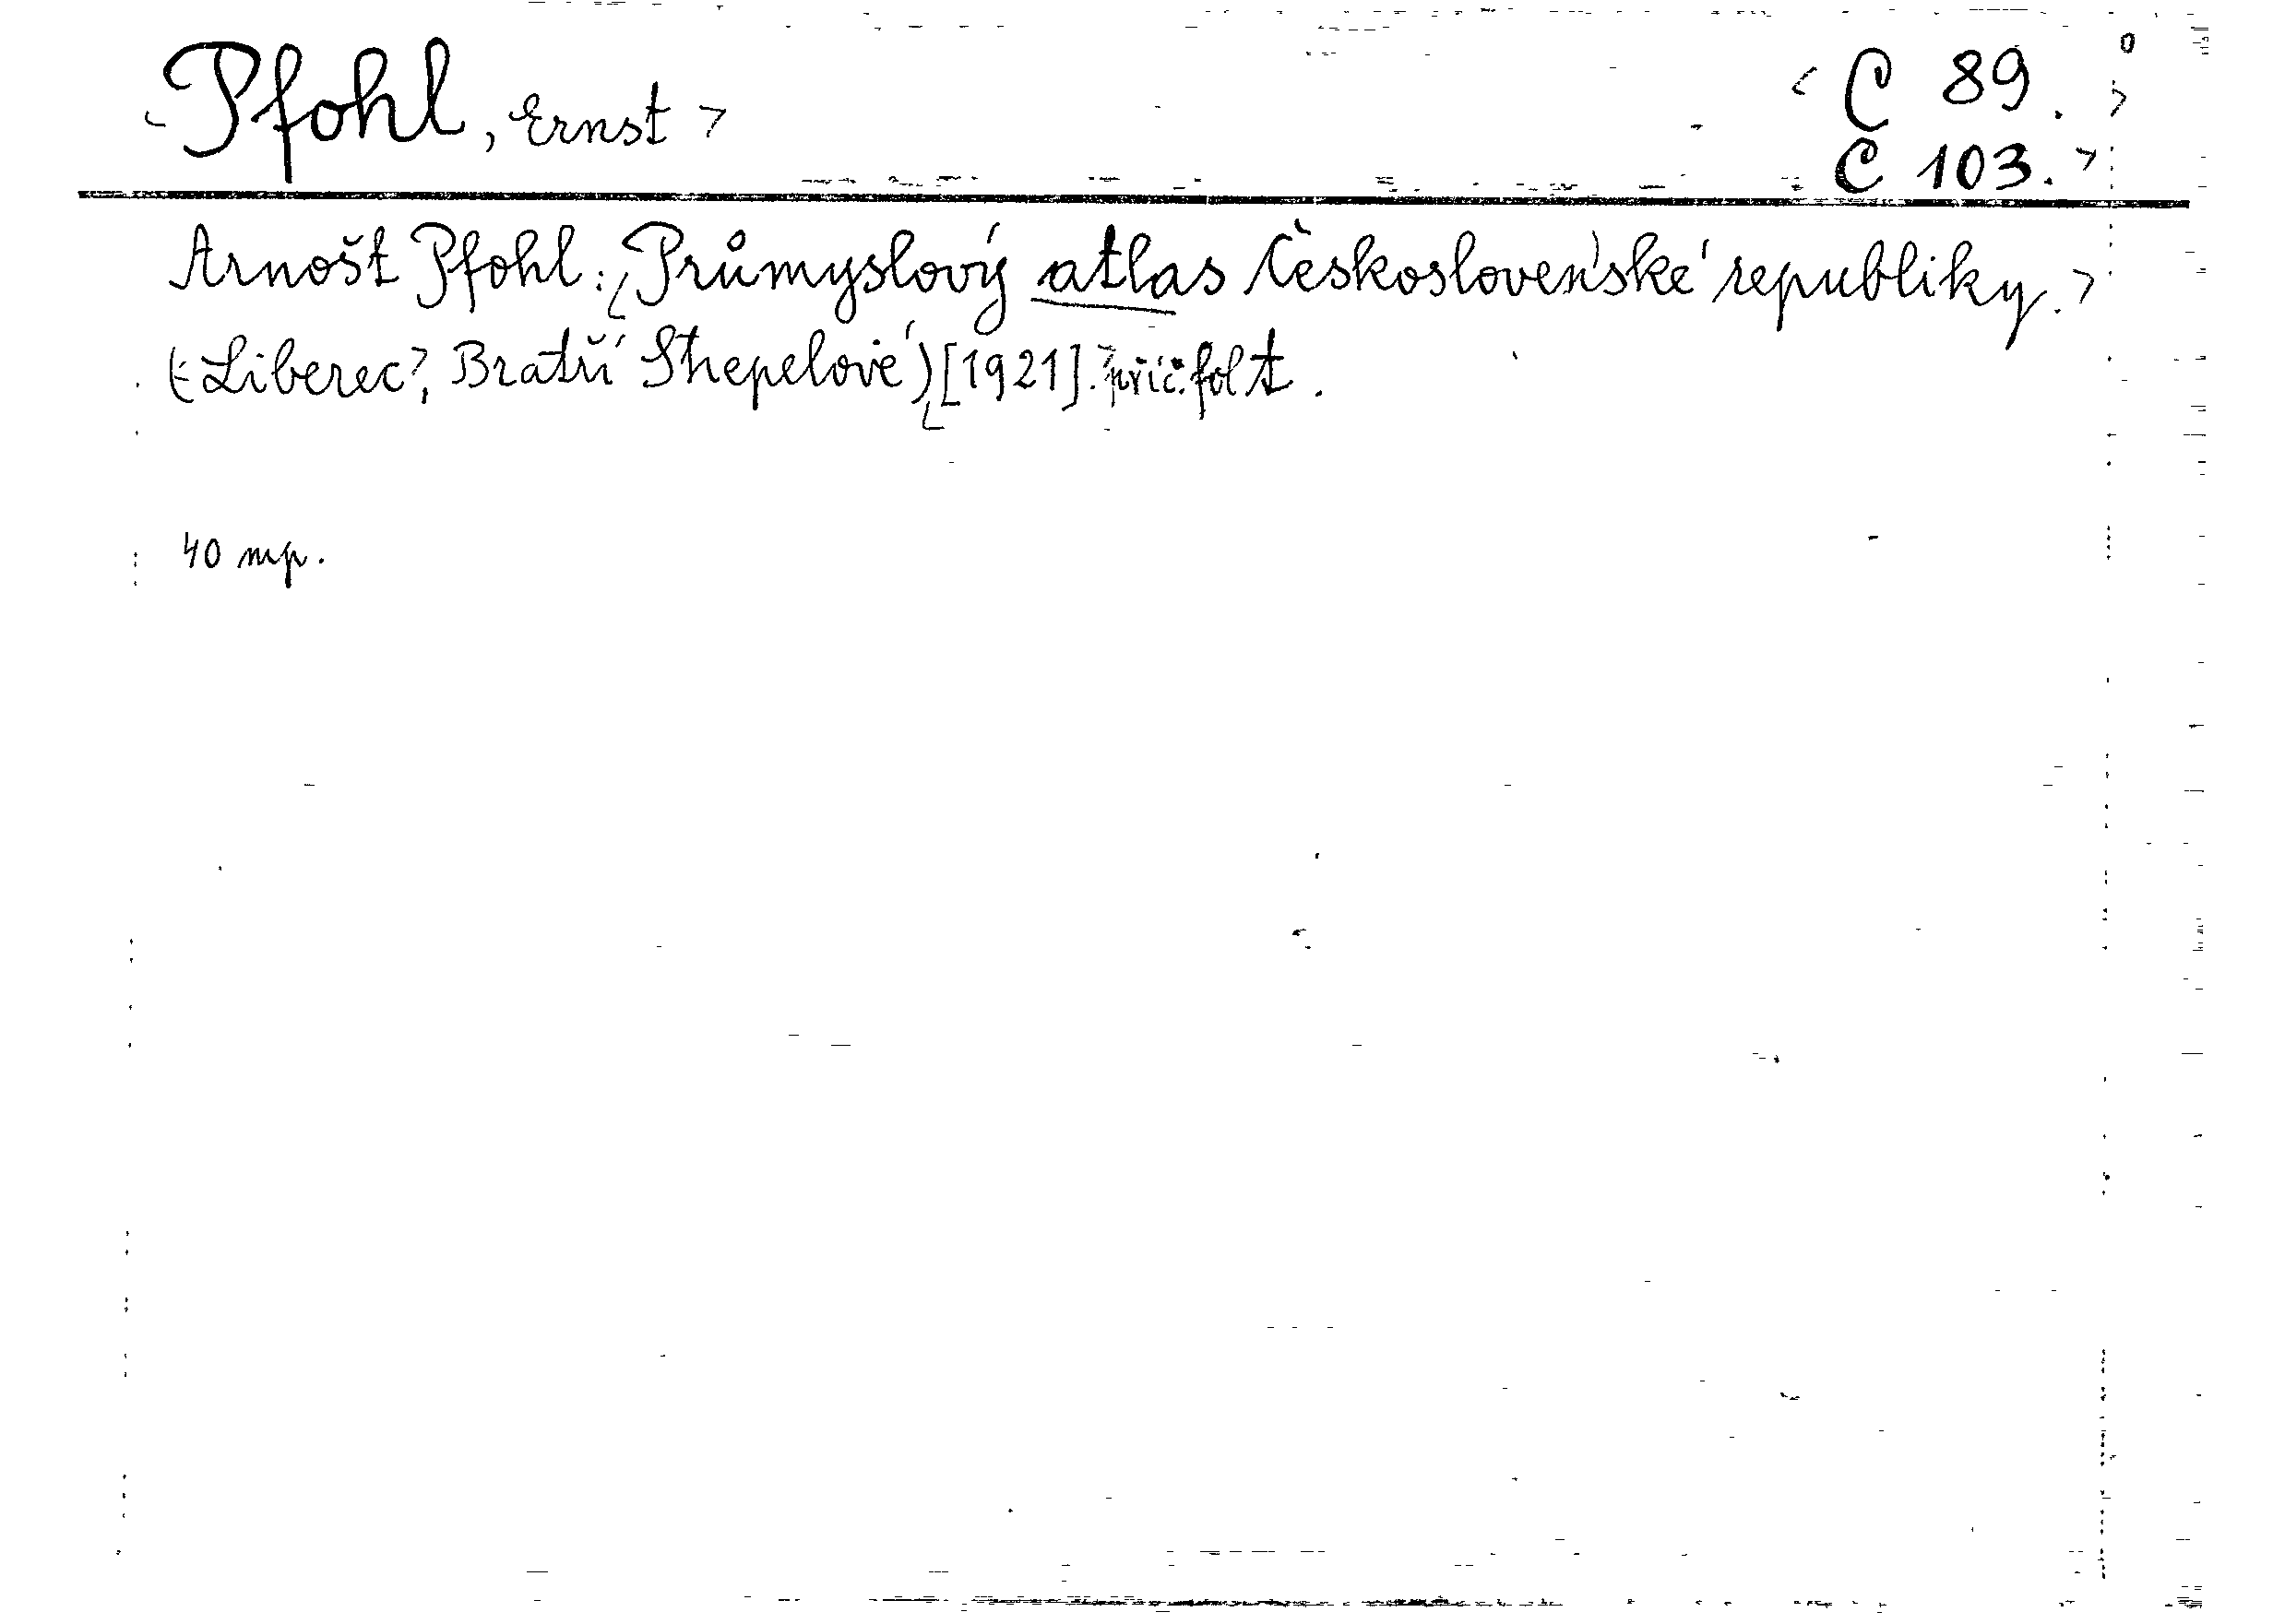 <Pfohl, Ernst>
<C 89.>
C 103.>
Arnošt Pfohl: <Průmyslový atlas Československé republiky.>
(<Liberec>, Bratří Stiepelové) <[1921].> příč. fol
40 mp.